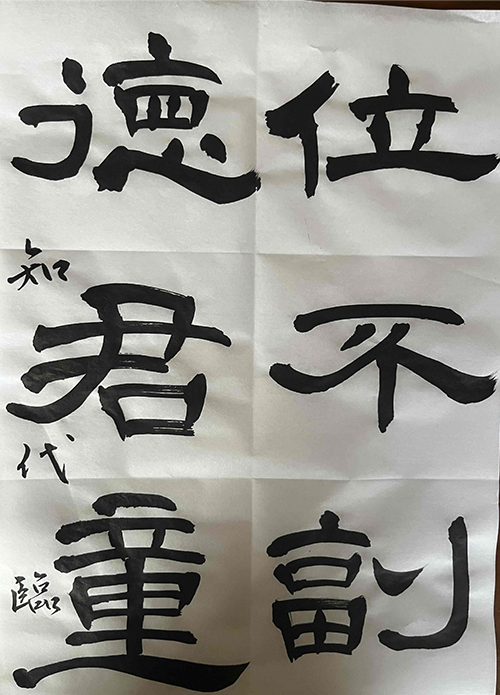 位不副
德君童
知代臨